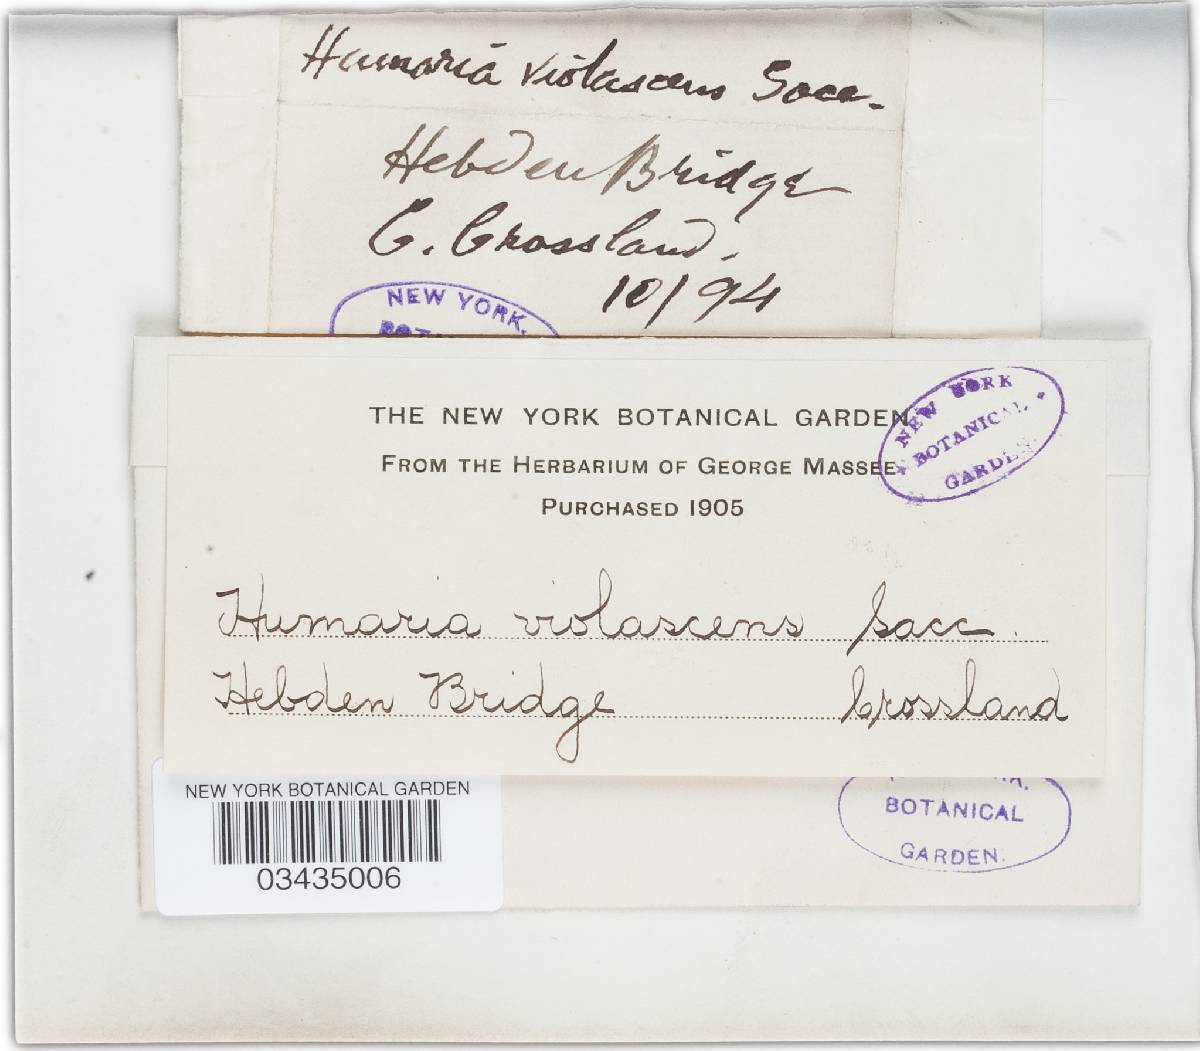 Humaria violascens Sacc.
Hebden Bridge
C. Crossland.
10/94
NEW YORK.
THE NEW YORK BOTANICAL GARDEN
FROM THE HERBARIUM OF GEORGE MASSEE
PURCHASED 1905
NEW YORK
BOTANICAL
GARDEN.
Humaria violascens Sacc.
Hebden Bridge Crossland
NEW YORK BOTANICAL GARDEN
03435006
BOTANICAL
GARDEN.